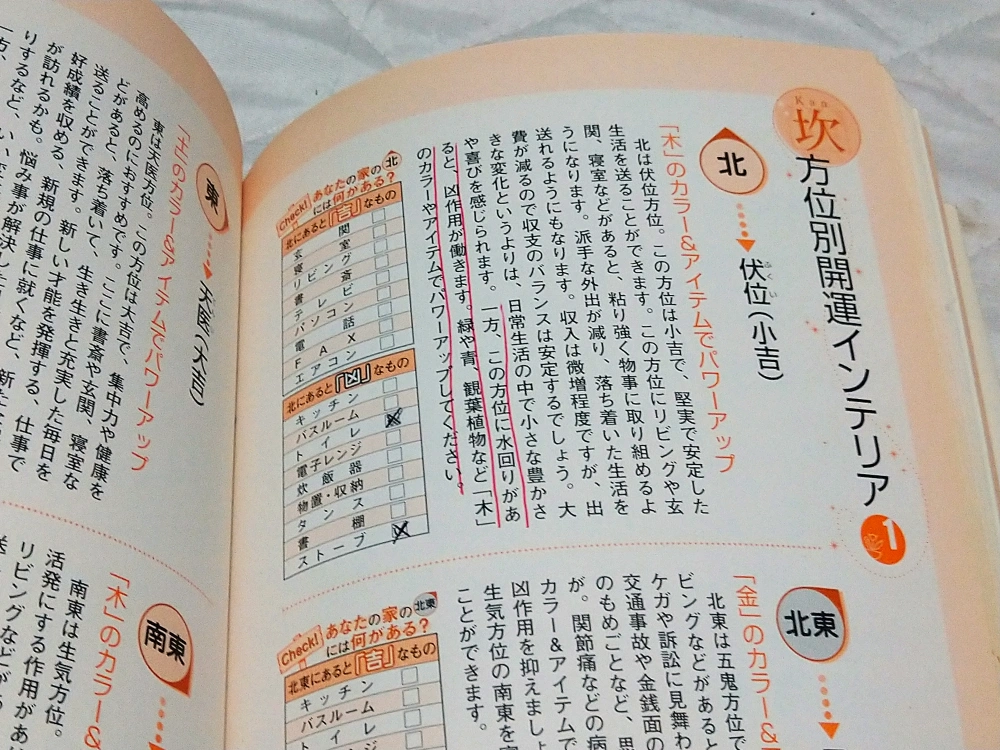 Kan
坎
方位別開運インテリア
1
北
伏位(小吉)
ふくい
「木」のカラー&アイテムでパワーアップ
北は伏位方位。この方位は小吉で、堅実で安定した
生活を送ることができます。この方位にリビングや玄
関、寝室などがあると、粘り強く物事に取り組めるよ
うになります。派手な外出が減り、落ち着いた生活を
送れるようにもなります。収入は微増程度ですが、出
費が減るので収支のバランスは安定するでしょう。大
きな変化というよりは、日常生活の中で小さな豊かさ
や喜びを感じられます。一方、この方位に水回りがあ
ると、凶作用が働きます。緑や青、観葉植物など「木」
のカラーやアイテムでパワーアップしてください。
Check!
あなたの家の北
には何がある?
北にあると「吉」なもの
玄関
寝室
リビング
書斎
テレビ
パソコン
電話
FAX
エアコン
北にあると「凶」なもの
キッチン
バスルーム
トイレ
電子レンジ
炊飯器
物置・収納
タンス
書棚
ストーブ
北東
「金」のカラー&
北東は五鬼方位で
ビングなどがあると
ケガや訴訟に見舞わ
交通事故や金銭面の
のもめごとなど、思
が。関節痛などの病
カラー&アイテムで
凶作用を抑えましょ
生気方位の南東を
ことができます。
Check!
あなたの家の北東
には何がある?
北東にあると「吉」なもの
キッチン
バスルーム
トイレ
東
天医(大吉)
「土」のカラー&アイテムでパワーアップ
東は天医方位。この方位は大吉で、集中力や健康を
高めるのにおすすめです。ここに書斎や玄関、寝室な
どがあると、落ち着いて、生き生きと充実した毎日を
送ることができます。新しい才能を発揮する、仕事で
好成績を収める、新規の仕事に就くなど、新たな
が訪れるかも。悩み事が解決した
りするなど、いい変
一方、
南東
「木」のカラー&
南東は生気方位。
活発にする作用があ
リビングなどが
送